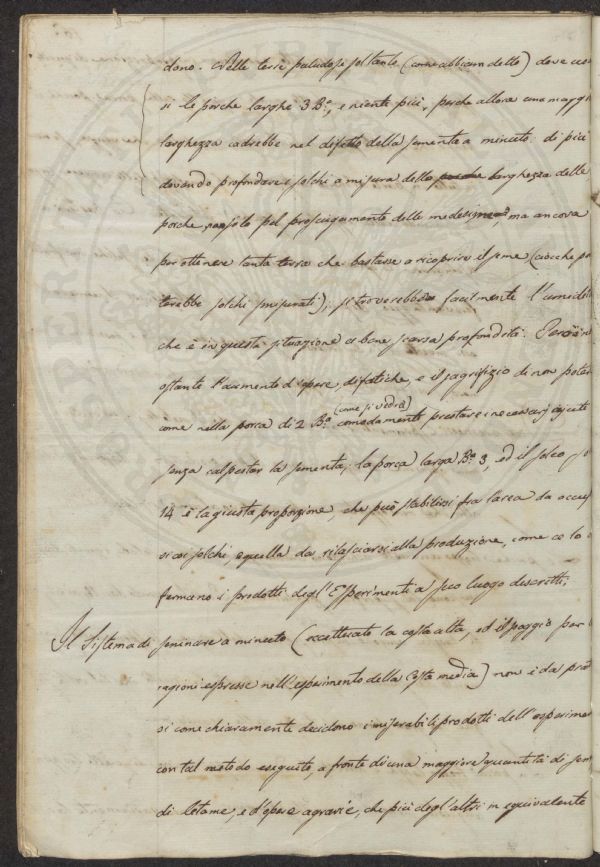 dono. Nelle terre paludose soltanto (come abbiam detto) dove
si le porche larghe 3 Ba, e niente più, perche allora una maggi
larghezza cadrebbe nel difetto della sementa a minuto. di più
dovendo profondare i solchi a misura della larghezza delle
porche, non solo pel prosciugamento delle medesime, ma ancora
per ottenere tanta terra che bastasse a ricoprire il seme (ciocche po
terebbe solchi smisurati), si troverebbe facilmente l'umidit
che è in questa situazione a bene scarsa profondità. Però in
ostante l'aumento d'opere, di fatiche, e il sagrifizio di non poter
come nella porca di 2 Ba (come si vedrà) comodamente prestare i necessarj ajuti
senza calpestar la sementa; la porca larga Ba 3, ed il solco
14 è la giusta proporzione, che può stabilirsi fra l'area da occup
si coi solchi, e quella da rilasciarsi alla produzione, come ce lo
fermano i prodotti degl'Esperimenti a suo luogo descritti;
Il Sistema di seminare a minuto (eccettuato la costa alta, ed il poggio per
ragioni espresse nell'esperimento della Costa media) non è da pra
si come chiaramente decidono i miserabili prodotti dell'esperimen
con tal metodo eseguito, a fronte di una maggiore quantità di sem
di letame, e d'opere agrarie, che più degl'altri in equivalente